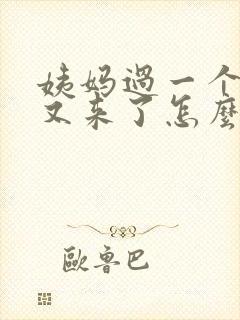 姨妈过一个
又来了怎麼
歐魯巴